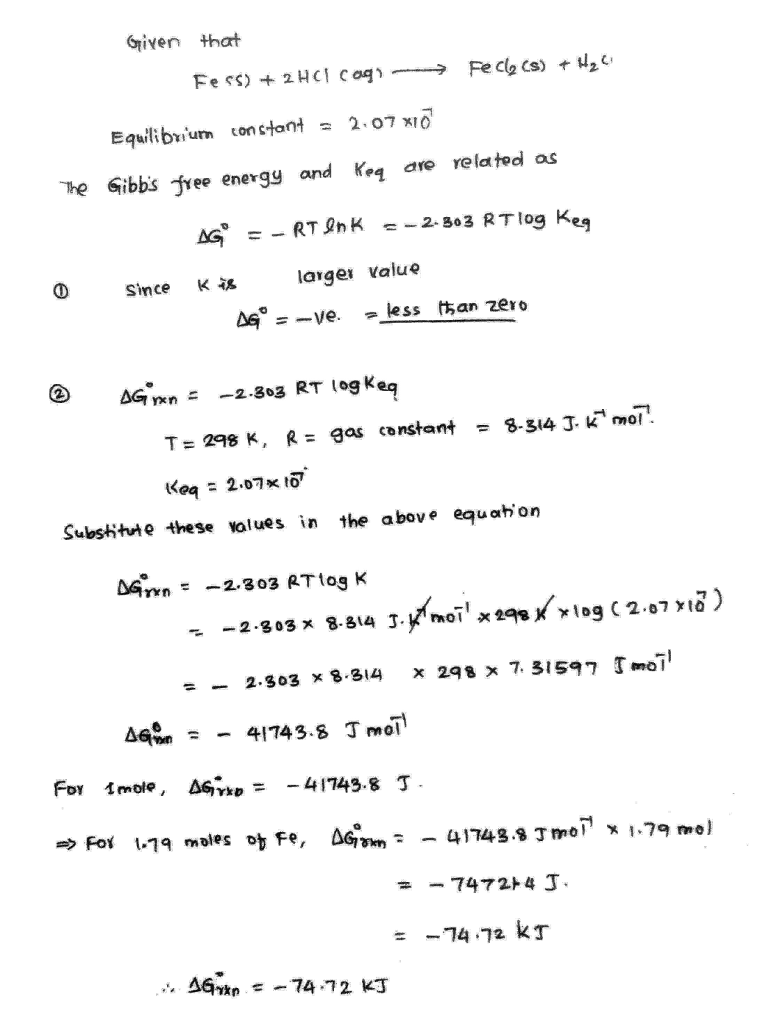 Given that
Fe(s) + 2HCl (aq) ⟶ FeCl₂(s) + H₂(
Equilibrium constant = 2.07 × 10⁻⁷
The Gibb's free energy and Keq are related as
ΔG° = - RT ln K = -2.303 RT log Keq
① Since K is larger value
ΔG° = -ve. = less than zero
② ΔG°rxn = -2.303 RT log Keq
T = 298 K, R = gas constant = 8.314 J. K⁻¹ mol⁻¹.
Keq = 2.07 × 10⁻⁷
Substitute these values in the above equation
ΔG°rxn = -2.303 RT log K
= -2.303 × 8.314 J. K⁻¹ mol⁻¹ × 298 K × log (2.07 × 10⁻⁷)
= - 2.303 × 8.314 × 298 × 7.31597 J mol⁻¹
ΔG°rxn = - 41743.8 J mol⁻¹
For 1mole, ΔG°rxn = -41743.8 J.
⇒ For 1.79 moles of Fe, ΔG°rxn = - 41743.8 J mol⁻¹ × 1.79 mol
= - 74721.4 J.
= -74.72 kJ
∴ ΔG°rxn = -74.72 KJ